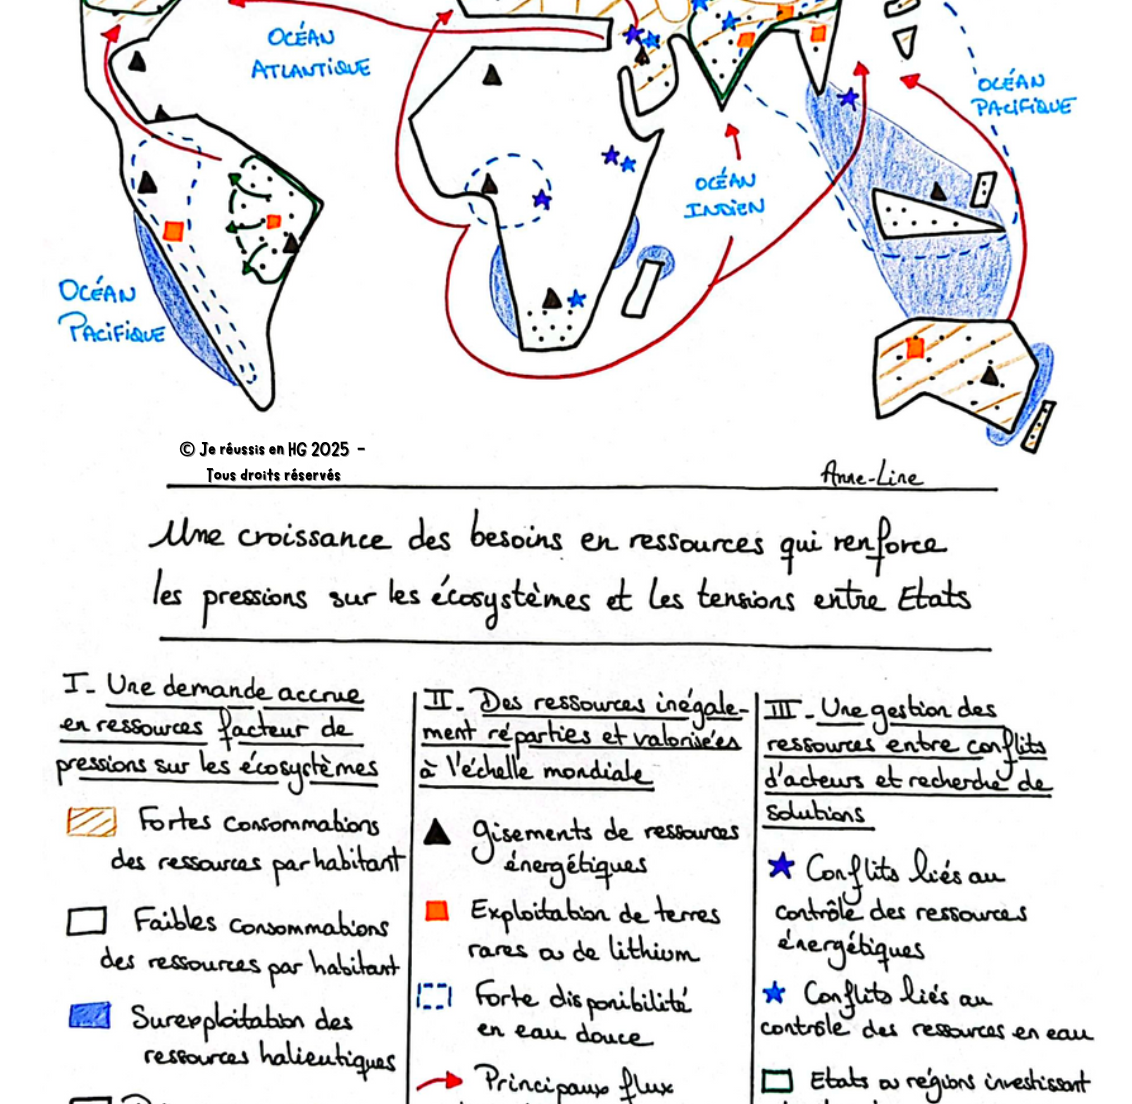 OCÉAN
ATLANTIQUE
OCÉAN
PACIFIQUE
OCÉAN
INDIEN
OCÉAN
PACIFIQUE
© Je réussis en HG 2025 -
Tous droits réservés
Anne-Line
Une croissance des besoins en ressources qui renforce
les pressions sur les écosystèmes et les tensions entre Etats
I- Une demande accrue
en ressources facteur de
pressions sur les écosystèmes
Fortes consommations
des ressources par habitant
Faibles consommations
des ressources par habitant
Surexploitation des
ressources halieutiques
II- Des ressources inégale-
ment réparties et valorisées
à l'échelle mondiale
Gisements de ressources
énergétiques
Exploitation de terres
rares ou de lithium
Forte disponibilité
en eau douce
Principaux flux
III- Une gestion des
ressources entre conflits
d'acteurs et recherche de
solutions
Conflits liés au
contrôle des ressources
énergétiques
Conflits liés au
contrôle des ressources en eau
Etats ou régions investissant